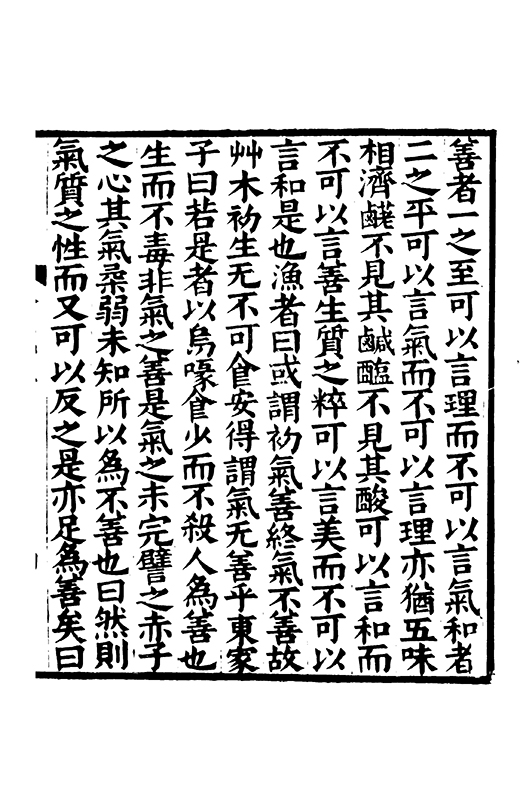 善者一之至可以言理而不可以言氣和者
二之平可以言氣而不可以言理亦猶五味
相濟鹺不見其鹹醯不見其酸可以言和而
不可以言善生質之粹可以言美而不可以
言和是也漁者曰或謂初氣善終氣不善故
艸木初生无不可食安得謂氣无善乎東家
子曰若是者以烏喙食少而不殺人為善也
生而不毒非氣之善是氣之未完譬之赤子
之心其氣柔弱未知所以為不善也曰然則
氣質之性而又可以反之是亦足為善矣曰